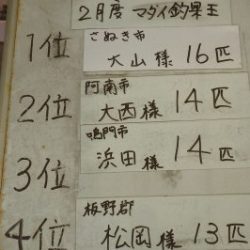 2月度 マダイ釣果王
1位 さぬき市
大山様 16匹
阿南市
2位 大西様 14匹
鳴門市
3位 浜田様 14匹
板野郡
4位 松岡様 13匹